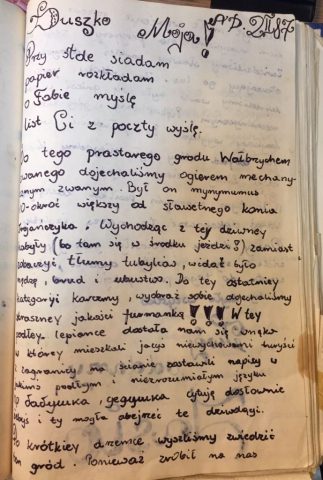 Duszko Moja! AD. 2187
Przy stole siadam
papier rozkładam
o Tobie myślę
list Ci z poczty wyślę.
Do tego prastarego grodu Wałbrychem
zwanego dojechaliśmy ogierem mechany-
cznym zwanym. Był on mynymumus
10-okroć większy od sławetnego konia
trojańczyka. Wychodząc z tej dziwnej
kobyły (bo tam się w środku jeździ!) zamiast
zobaczyć tłumy tubylców, widać było
nędzę, brud i ubustwo. Do tej ostatniej
kategoryi karczmy, wybraź sobie dojechaliśmy
strasznej jakości furmanką!!! W tej
podłej lepiance dostała nam się wnęka
w której mieszkali jacyś niewychowani turyści
z zagranicy na ścianie zostawili napisy w
jakimś podłym, niezrozumiałym języku
babuszka, cytuję dosłownie
żebyś i ty mogła obejrzeć te dziwolągi.
Po krótkiey drzemce wyszliśmy zwiedzić
ten gród. Ponieważ zrobił na nas